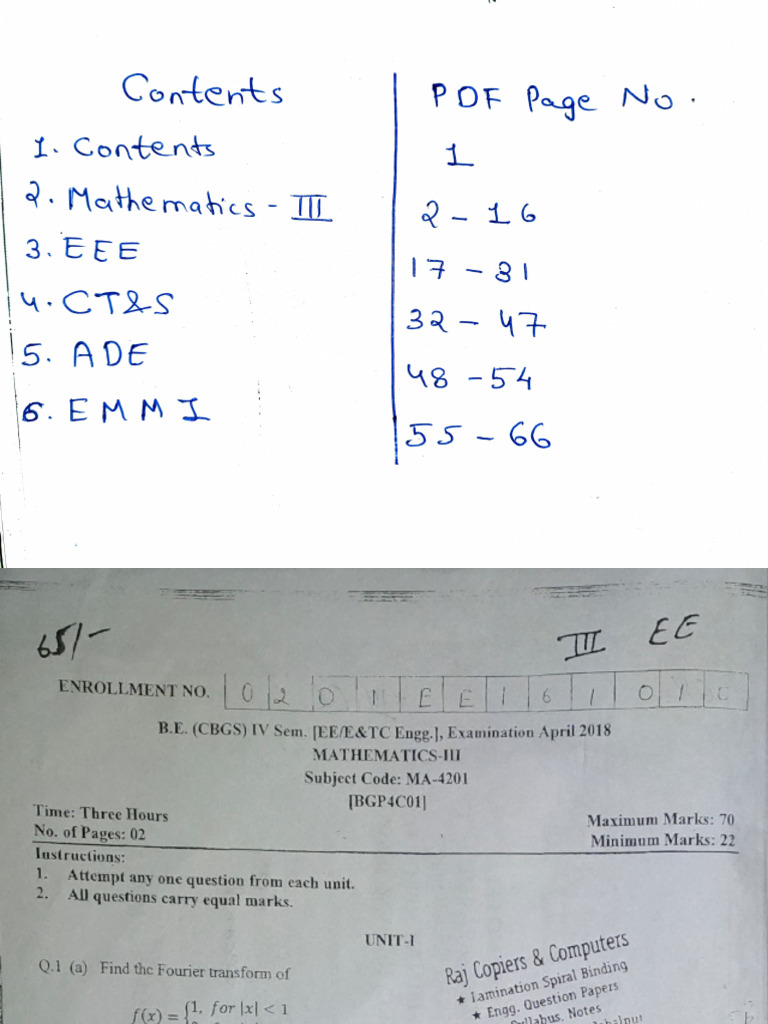 Contents
PDF Page No.
1. Contents
1
2. Mathematics - III
2 - 16
3. EEE
17 - 31
4. CT&S
32 - 47
5. ADE
48 - 54
6. EMMI
55 - 66
65/-
III EE
ENROLLMENT NO. 0 2 0 1 E E 1 6 1 0 1
B.E. (CBGS) IV Sem. [EE/E&TC Engg.], Examination April 2018
MATHEMATICS-III
Subject Code: MA-4201
[BGP4C01]
Time: Three Hours
Maximum Marks: 70
No. of Pages: 02
Minimum Marks: 22
Instructions:
1. Attempt any one question from each unit.
2. All questions carry equal marks.
UNIT-I
Q.1 (a) Find the Fourier transform of
f(x) = {1, for |x| < 1
Raj Copiers & Computers
★ Lamination Spiral Binding
★ Engg. Question Papers
Syllabus. Notes